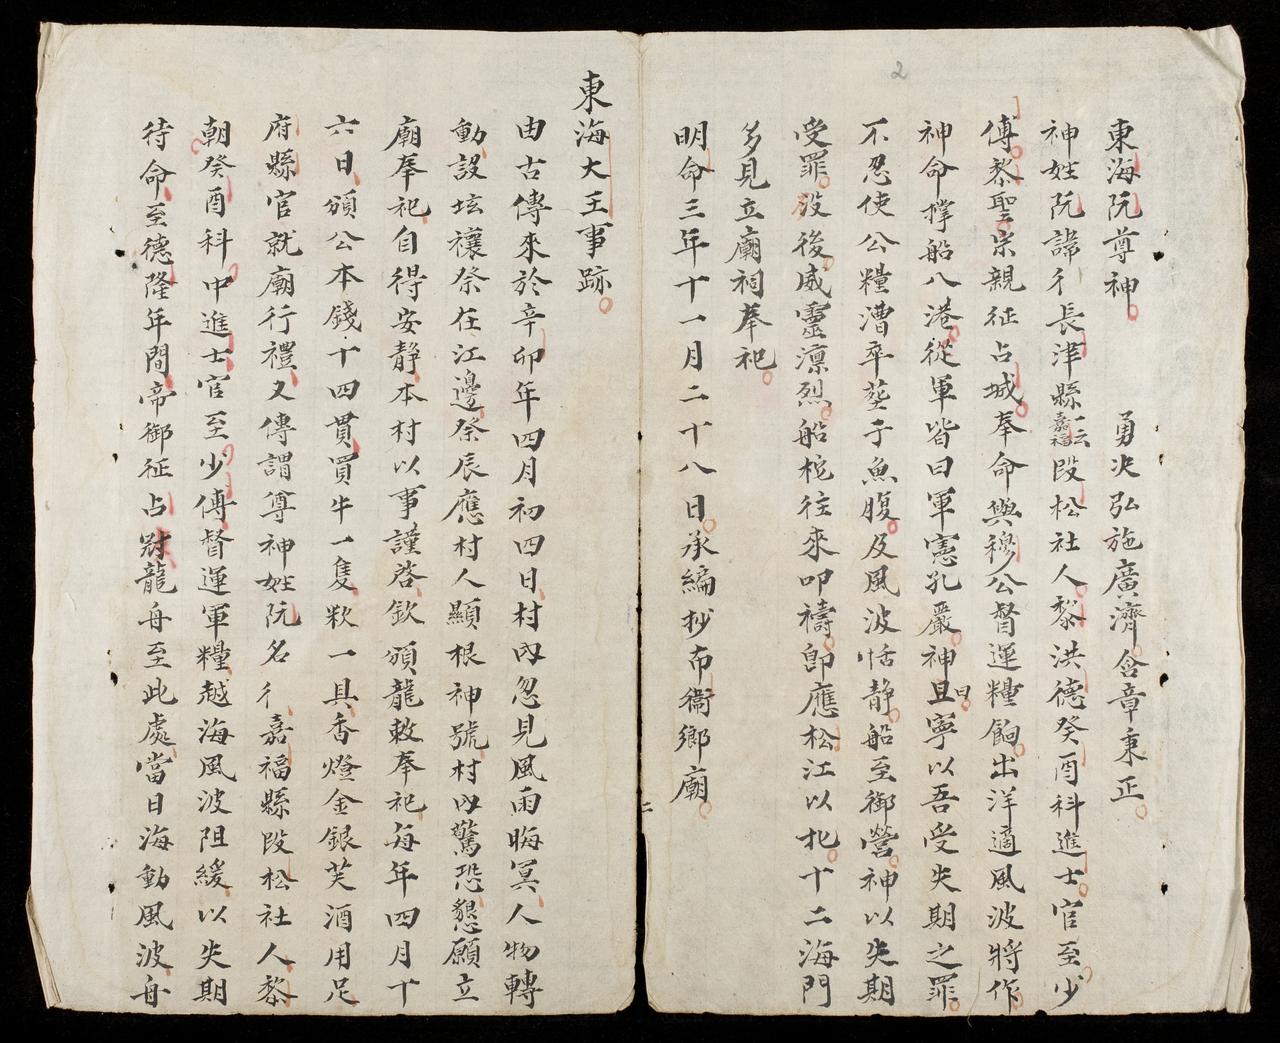 2
東海阮尊神 勇决弘施廣濟含章秉正
神姓阮諱彳長津縣一云嘉福段松社人黎洪德癸酉科進士官至少
傅黎聖宗親征占城奉命與穆公督運糧餉出洋適風波將作
神命撑船八港從軍皆曰軍憲孔嚴神且曰寧以吾受失期之罪
不忍使公糧漕卒葬于魚腹及風波恬静船至御營神以失期
受罪没後威靈凛烈船柁往來叩禱即應松江以北十二海門
多見立廟祠奉祀
明命三年十一月二十八日承編抄布衞鄉廟
二
東海大王事跡
由古傳來於辛卯年四月初四日村内忽見風雨晦冥人物轉
動設坛禳祭在江邊祭辰應村人顯根神號村内驚恐懇願立
廟奉祀自得安静本村以事謹啓欽頒龍敕奉祀每年四月十
六日頒公本錢十四貫買牛一隻歀一具香燈金銀芙酒用足
府縣官就廟行禮又傳謂尊神姓阮名彳嘉福縣段松社人黎
朝癸酉科中進士官至少傅督運軍糧越海風波阻緩以失期
待命至德隆年間帝御征占尉龍舟至此處當日海動風波舟